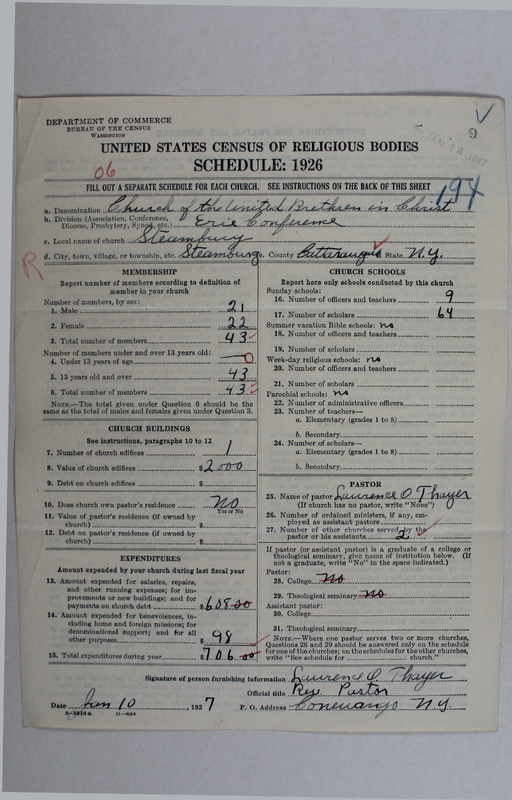 9
DEPARTMENT OF COMMERCE
BUREAU OF THE CENSUS
WASHINGTON
UNITED STATES CENSUS OF RELIGIOUS BODIES
SCHEDULE: 1926
06
FILL OUT A SEPARATE SCHEDULE FOR EACH CHURCH. SEE INSTRUCTIONS ON THE BACK OF THIS SHEET
194
a. Denomination Church of the United Brethren in Christ
b. Division (Association, Conference, Diocese, Presbytery, Synod, etc.) Erie Conference
c. Local name of church Steamburg
d. City, town, village, or township, etc. Steamburg e. County Cattaraugus State N.Y.
R
MEMBERSHIP
Report number of members according to definition of
member in your church
Number of members, by sex:
1. Male 21
2. Female 22
3. Total number of members 43
Number of members under and over 13 years old:
4. Under 13 years of age 0
5. 13 years old and over 43
6. Total number of members 43
NOTE.—The total given under Question 6 should be the
same as the total of males and females given under Question 3.
CHURCH BUILDINGS
See instructions, paragraphs 10 to 12
7. Number of church edifices 1
8. Value of church edifices $2000
9. Debt on church edifices $
10. Does church own pastor's residence No
Yes or No
11. Value of pastor's residence (if owned by
church) $
12. Debt on pastor's residence (if owned by
church) $
EXPENDITURES
Amount expended by your church during last fiscal year
13. Amount expended for salaries, repairs,
and other running expenses; for im-
provements or new buildings; and for
payments on church debt $608.00
14. Amount expended for benevolences, in-
cluding home and foreign missions; for
denominational support; and for all
other purposes $98
15. Total expenditures during year $706.00
CHURCH SCHOOLS
Report here only schools conducted by this church
Sunday schools:
16. Number of officers and teachers 9
17. Number of scholars 64
Summer vacation Bible schools: no
18. Number of officers and teachers
19. Number of scholars
Week-day religious schools: no
20. Number of officers and teachers
21. Number of scholars
Parochial schools: no
22. Number of administrative officers
23. Number of teachers—
a. Elementary (grades 1 to 8)
b. Secondary
24. Number of scholars—
a. Elementary (grades 1 to 8)
b. Secondary
PASTOR
25. Name of pastor Lawrence O Thayer
(If church has no pastor, write "None")
26. Number of ordained ministers, if any, em-
ployed as assistant pastors
27. Number of other churches served by the
pastor or his assistant 2
If pastor (or assistant pastor) is a graduate of a college or
theological seminary, give name of institution below. (If
not a graduate, write "No" in the space indicated.)
Pastor:
28. College No
29. Theological seminary No
Assistant pastor:
30. College
31. Theological seminary
NOTE.—Where one pastor serves two or more churches,
Questions 28 and 29 should be answered only on the schedule
for one of the churches; on the schedules for the other churches,
write "See schedule for church."
Signature of person furnishing information Lawrence O. Thayer
Official title Rev. Pastor
Date Jan 10, 1927 P. O. Address Conewango N.Y.